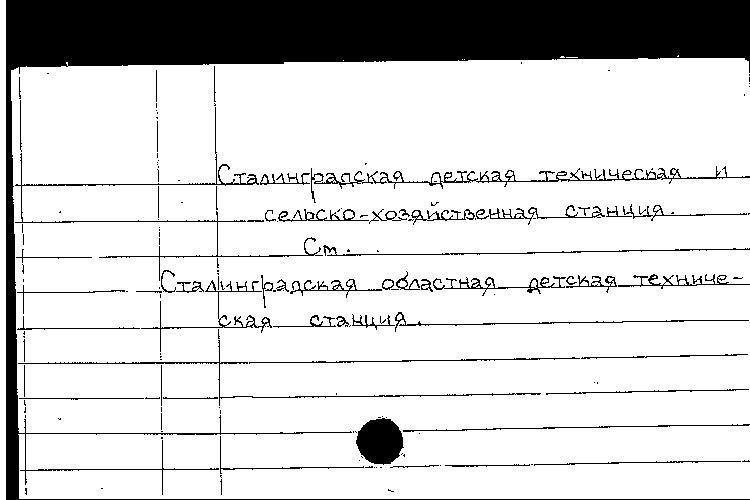 Сталинградская детская техническая и
сельско-хозяйственная станция.
См.
Сталинградская областная детская техниче-
ская станция.